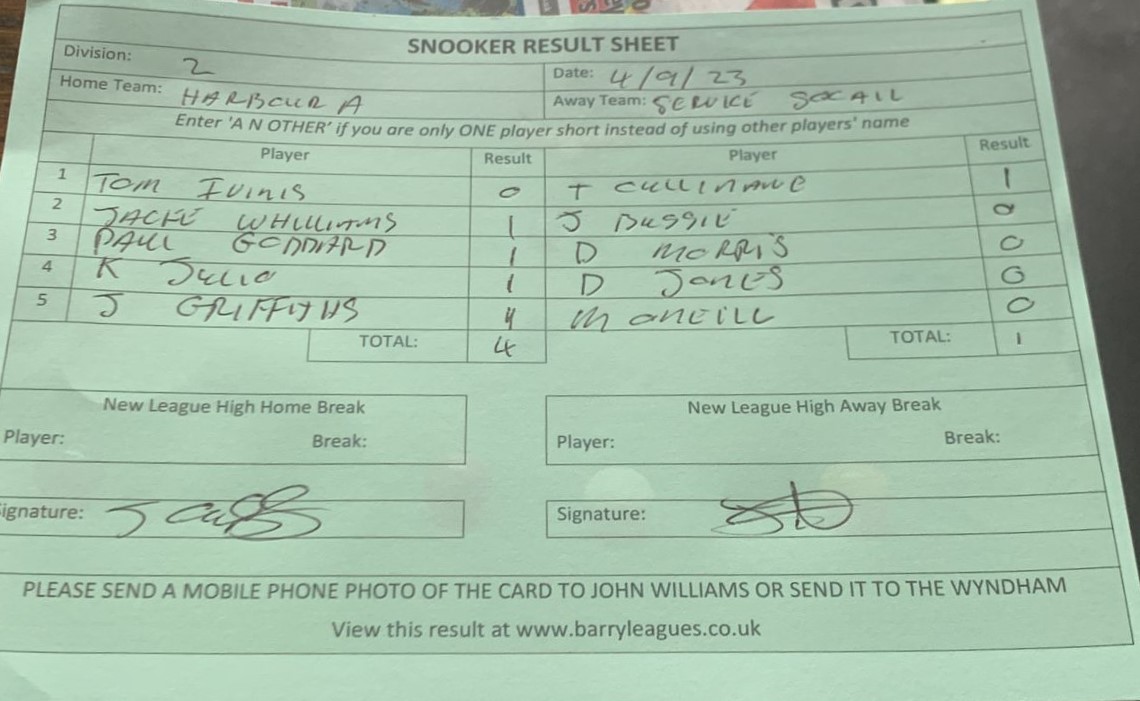 SNOOKER RESULT SHEET
Division: 2 Date: 4/9/23
Home Team: HARBOUR A Away Team: SERVICE SOCAIL
Enter 'A N OTHER' if you are only ONE player short instead of using other players' name
Player Result Player Result
1 TOM IVINIS 0 T CULLINANE 1
2 JACKE WHILLIAMS 1 J BUSSIE 0
3 PAUL GODDARD 1 D MORRIS 0
4 K JULIO 1 D JONES 0
5 J GRIFFITHS 1 M ONEILL 0
TOTAL: 4 TOTAL: 1
New League High Home Break New League High Away Break
Player: Break: Player: Break:
Signature: Signature:
PLEASE SEND A MOBILE PHONE PHOTO OF THE CARD TO JOHN WILLIAMS OR SEND IT TO THE WYNDHAM
View this result at www.barryleagues.co.uk